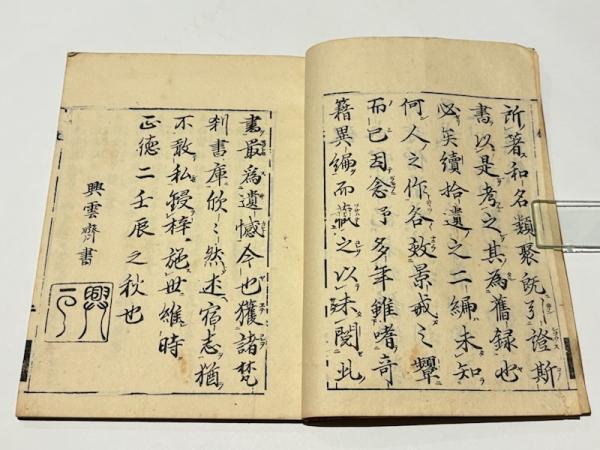 所著和名類聚既引證斯
書以是考之其為舊録也
必矣續拾遺之二編未知
何人之作各效景戒之顰
而已因念予多年雖嗜奇
籍異編而藏之以未閲此
書最為遺憾今也獲諸梵
刹書庫欣々然遂宿志猶
不敢私鋟梓施世維時
正德二壬辰之秋也
興雲齋書